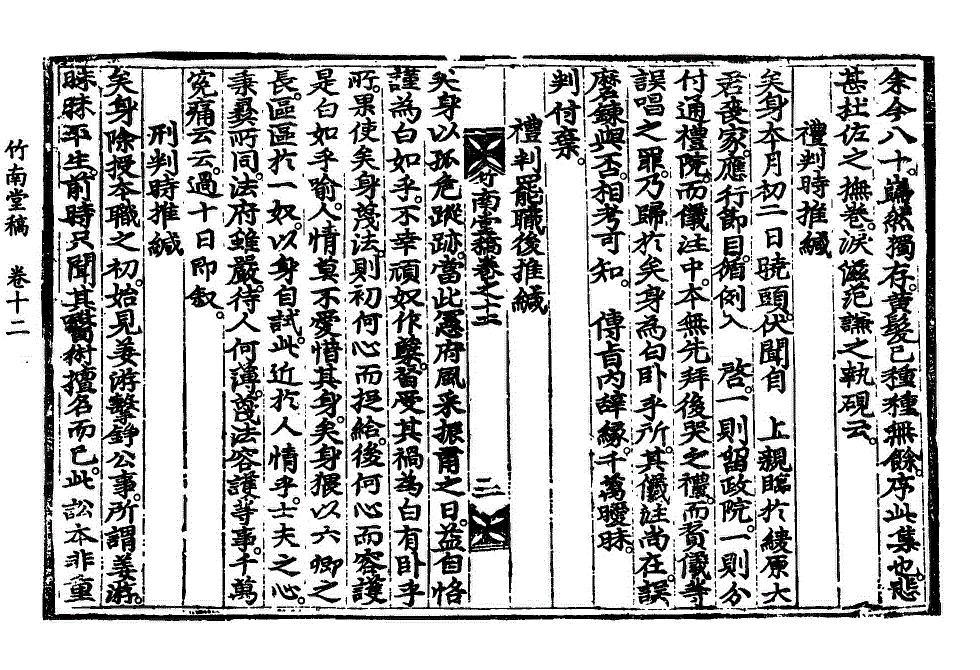 余今八十。巋然獨存。賣髮已種種無餘。序此集也。悲
甚杜佐之撫卷。淚滋范謙之執硯云。
禮判時推緘
矣身本月初二日曉頭。伏聞自 上親臨於綾原大
君喪家。應行節目。循例入 啓。一則留政院。一則分
付通禮院。而儀注中。本無先拜後哭之禮。而贊儀等
誤唱之罪。乃歸於矣身爲白卧乎所。其儀註尚在。誤
磨鍊與否。相考可知。 傳旨內辭緣。千萬曖昧。
判付棄。
禮判罷職後推緘
竹南堂稿卷之十二 二
矣身以孤危蹤跡。當此憲府風采振肅之日。益自恪
謹爲白如乎。不幸頑奴作孼。當受其禍爲白有卧乎
所。果使矣身蔑法。則初何心而捉給。後何心而容護
是白如乎喩。人情莫不愛惜其身。矣身猥以六卿之
長。區區於一奴。以身自試。此近於人情乎。士夫之心
秉彝所同。法府雖嚴。待人何薄。蔑法容護等事。千萬
寃痛云云。過十日卽叙。
刑判時推緘
矣身除授本職之初。始見姜游擊錚公事。所謂姜游
昧昧平生。前時只聞其醫術擅名而已。此訟本非重
竹南堂稿 卷十二